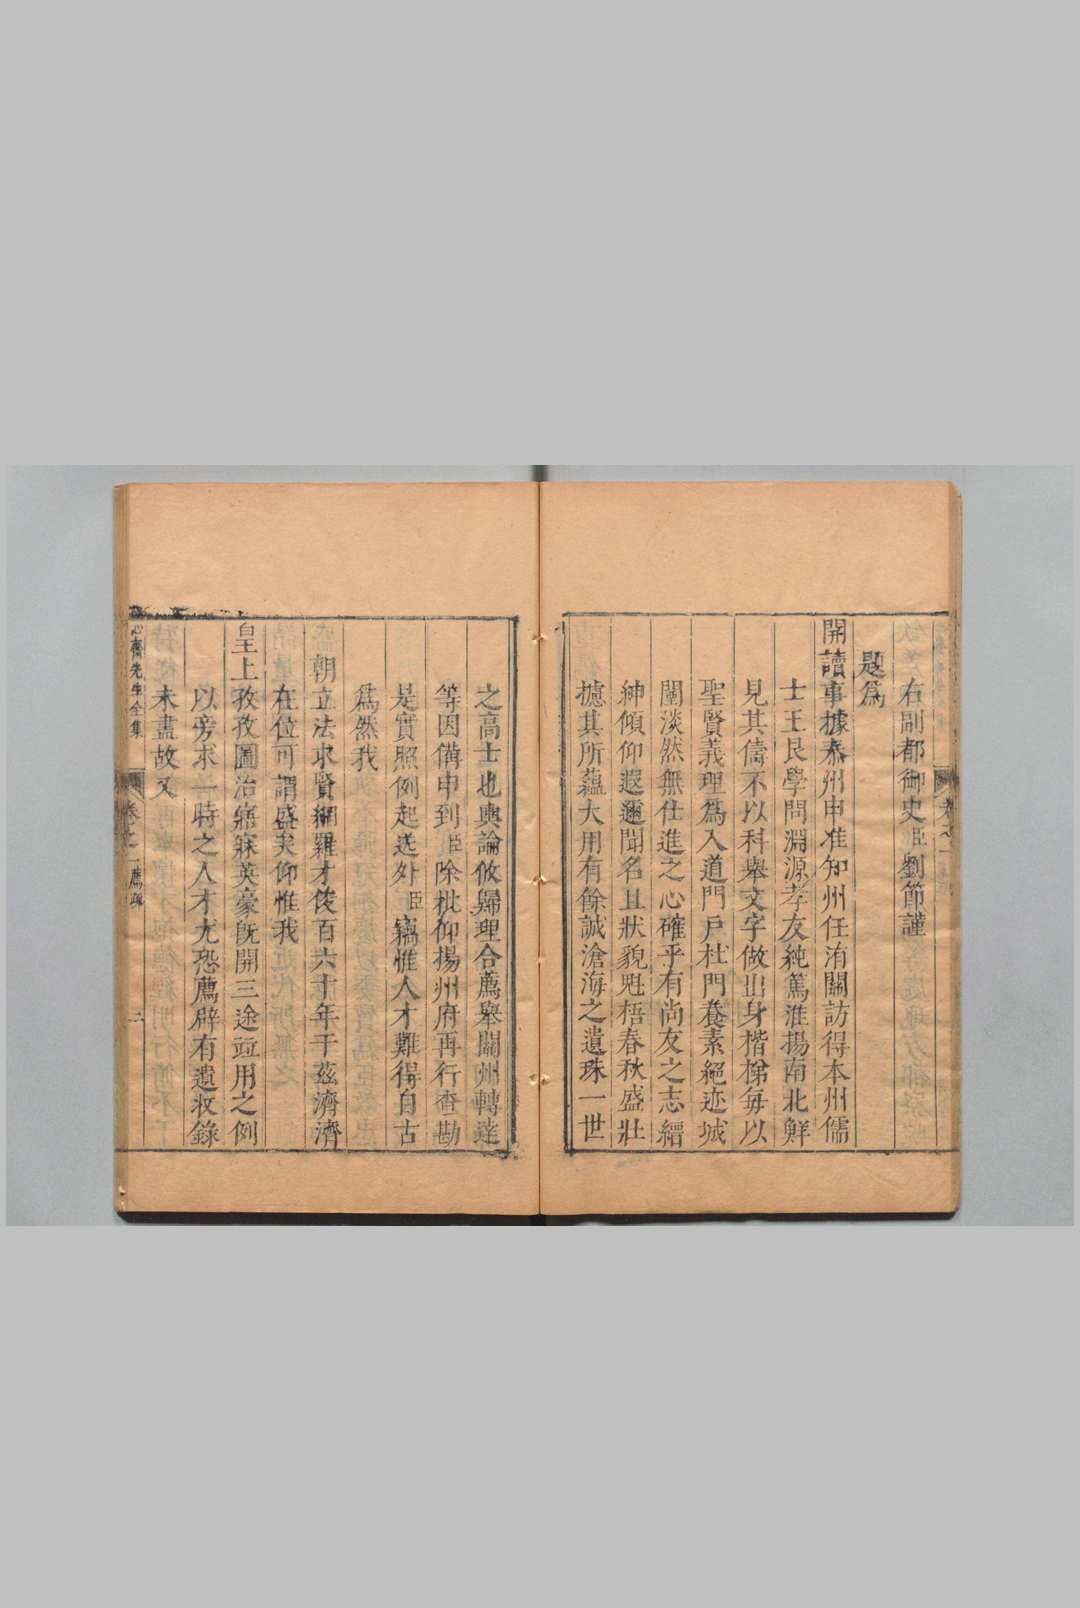 右副都御史臣劉節謹
題爲
開讀事據泰州申准知州任洧關訪得本州儒
士王艮學問淵源孝友純篤淮揚南北鮮
見其儔不以科舉文字做出身楷梯每以
聖賢義理爲入道門戸杜門養素絕迹城
闉淡然無仕進之心確乎有尚友之志縉
紳傾仰遐邇聞名且狀貌魁梧春秋盛壯
攄其所蘊大用有餘誠滄海之遺珠一世
之高士也輿論攸歸理合薦舉關州轉達
等因備申到臣除批仰揚州府再行查勘
是實照例起送外臣竊惟人才難得自古
爲然我
朝立法求賢網羅才俊百六十年于茲濟濟
在位可謂盛矣仰惟我
皇上孜孜圖治寤寐英豪旣開三途竝用之例
以旁求一時之人才尤恐薦辟有遺收錄
未盡故又
心齋先生全集
卷之一薦疏
二